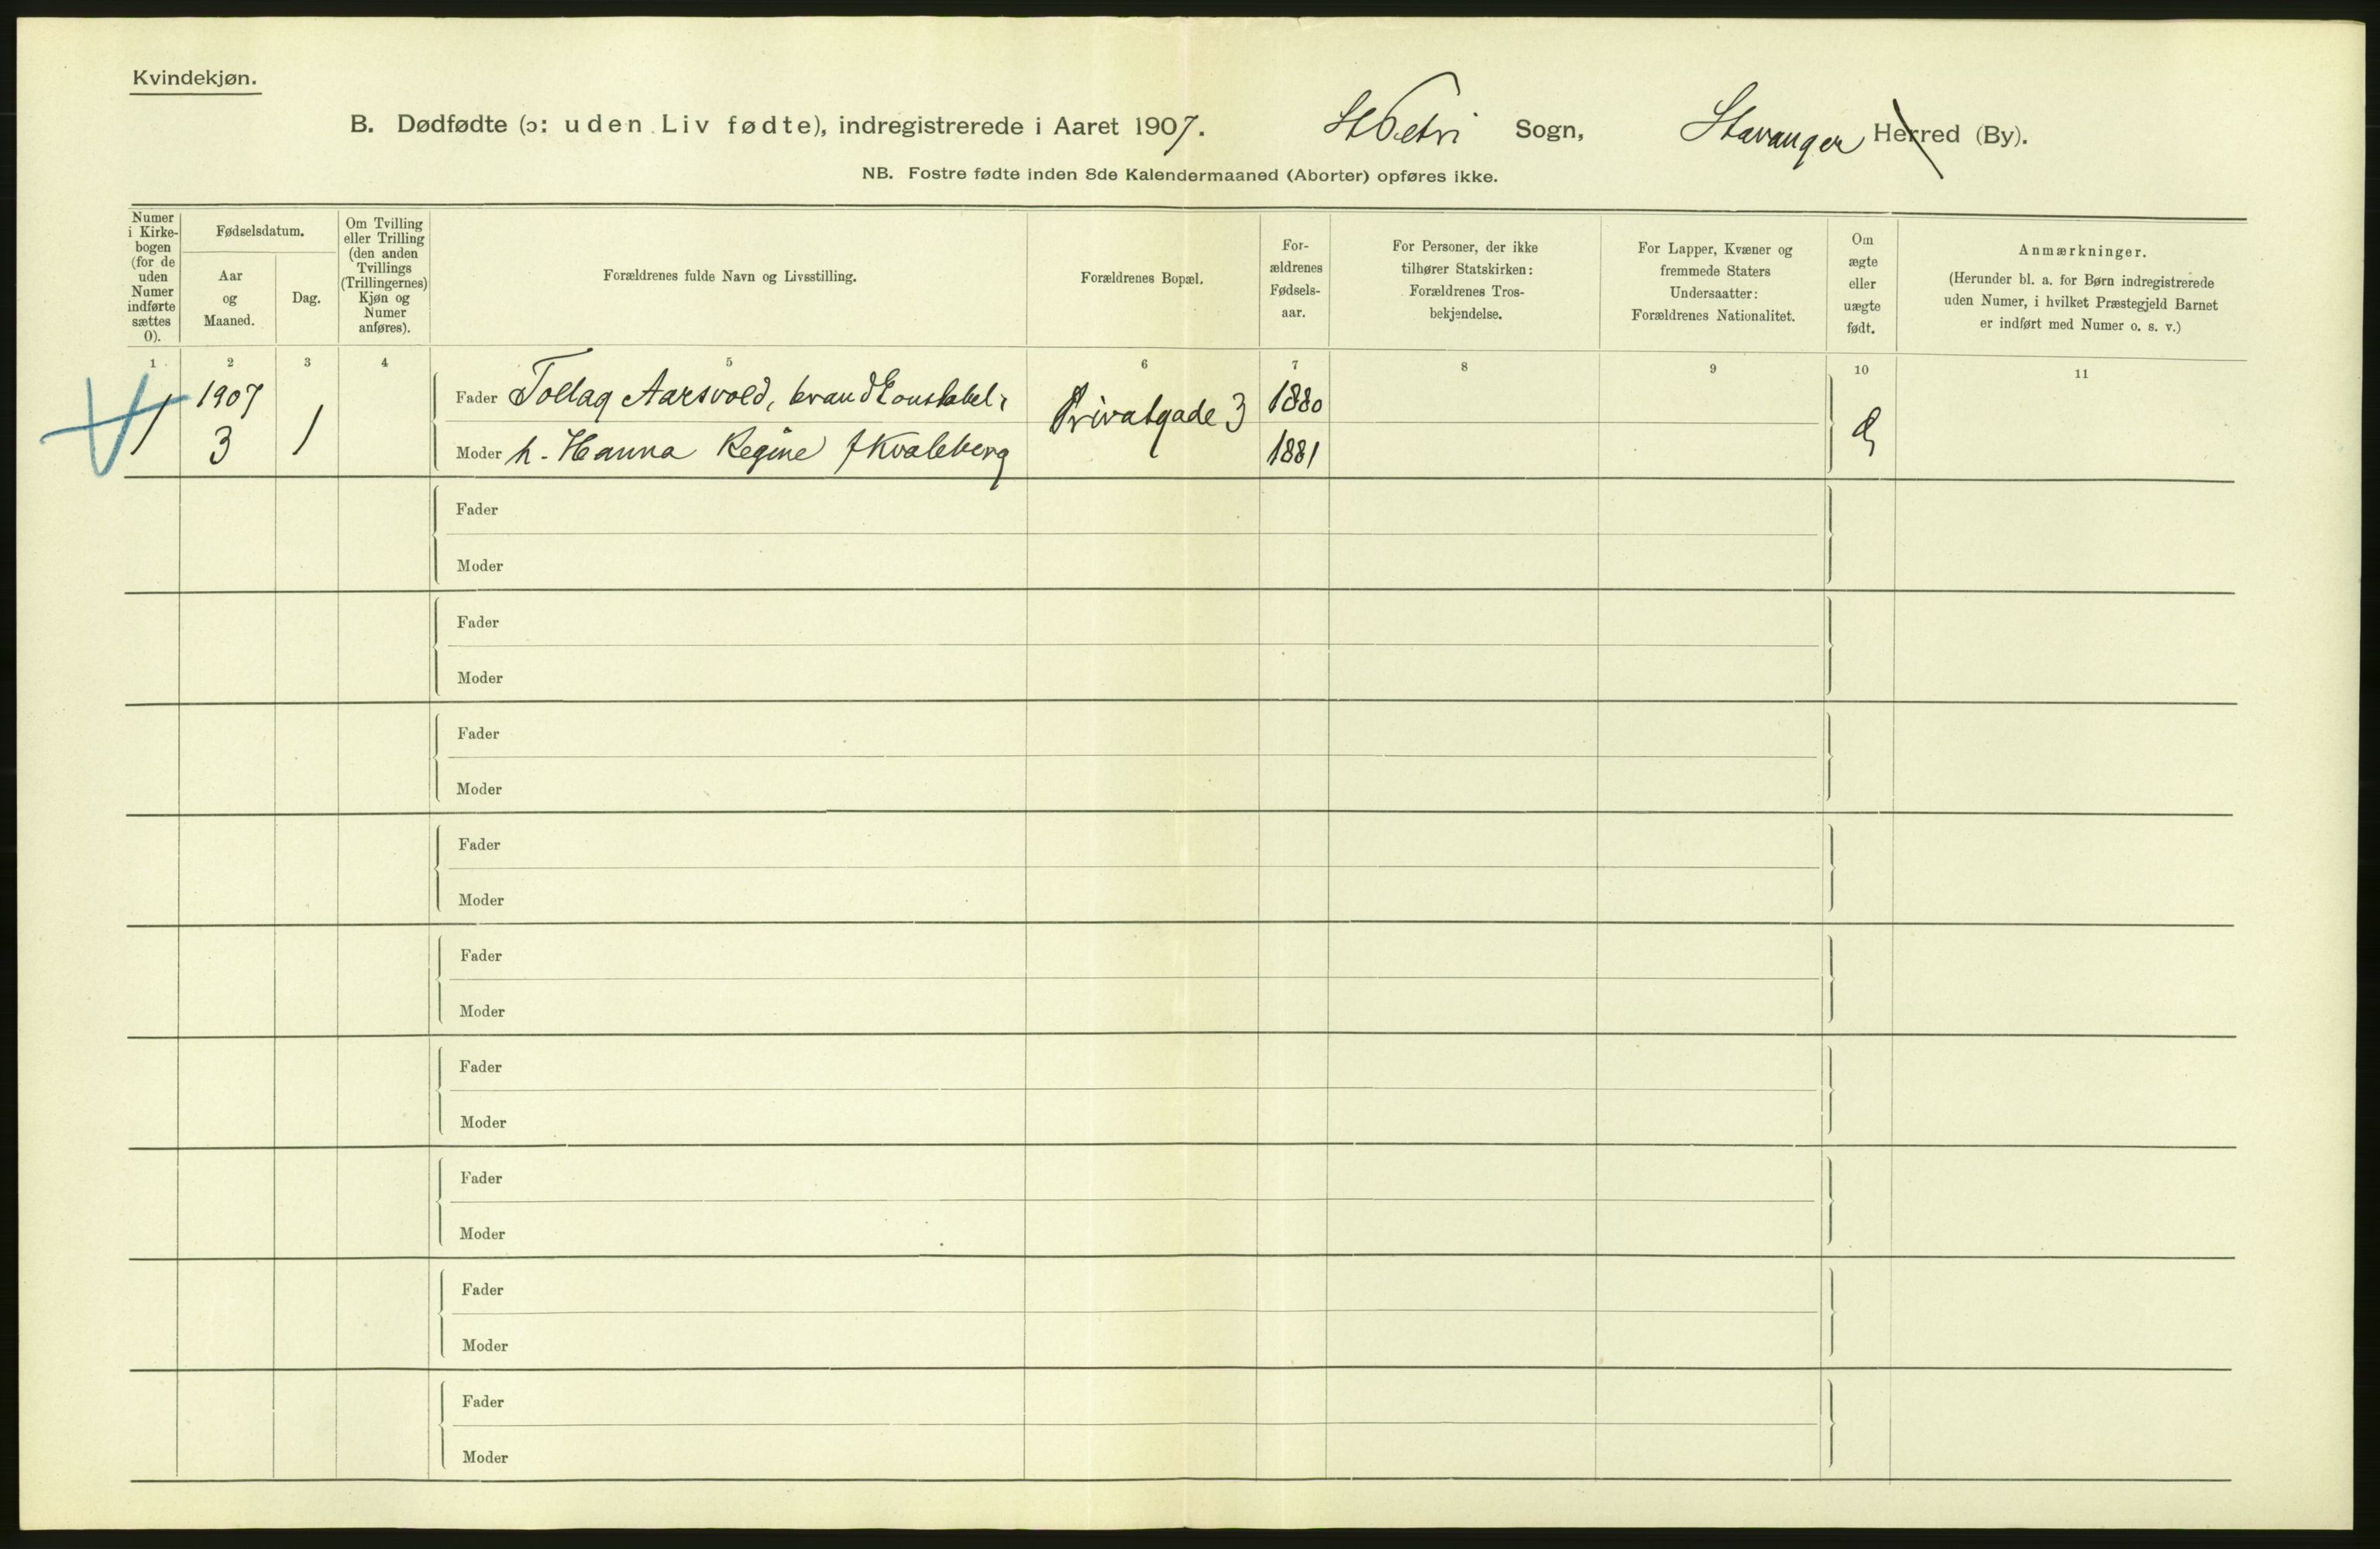 Kvindekjøn.
B. Dødfødte (ɔ: uden Liv fødte), indregistrerede i Aaret 1907. St Petri Sogn, Stavanger Herred (By).
NB. Fostre fødte inden 8de Kalendermaaned (Aborter) opføres ikke.
Numer i Kirke-bogen (for de uden Numer indførte sættes 0).
Fødselsdatum.
Aar og Maaned.
Dag.
Om Tvilling eller Trilling (den anden Tvillings (Trillingernes) Kjøn og Numer anføres).
Forældrenes fulde Navn og Livsstilling.
Forældrenes Bopæl.
For-ældrenes Fødsels-aar.
For Personer, der ikke tilhører Statskirken: Forældrenes Tros-bekjendelse.
For Lapper, Kvæner og fremmede Staters Undersaatter: Forældrenes Nationalitet.
Om ægte eller uægte født.
Anmærkninger.
(Herunder bl. a. for Børn indregistrerede uden Numer, i hvilket Præstegjeld Barnet er indført med Numer o. s. v.)
1 2 3 4 5 6 7 8 9 10 11
1 1907 3 1 Fader Tollag Aarsvold, brandkonstabel, Privatgade 3 1880
Moder h. Hanna Regine f Kvaleberg 1881
Fader
Moder
Fader
Moder
Fader
Moder
Fader
Moder
Fader
Moder
Fader
Moder
Fader
Moder
Fader
Moder
Fader
Moder